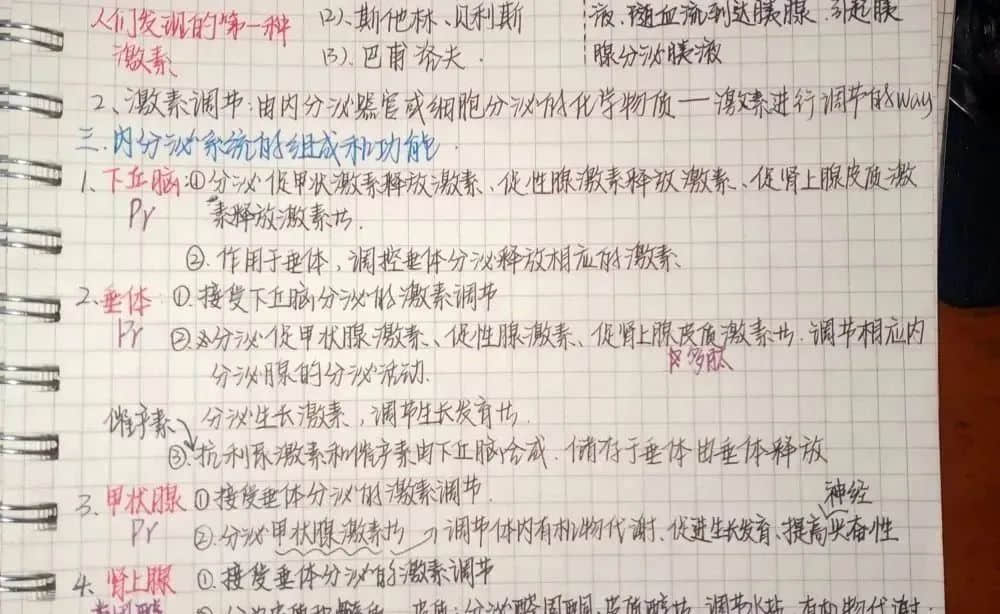 人们发现的第一种 (2).斯他林、贝利斯 液、随血流到达胰腺、引起胰
激素 (3).巴甫洛夫. 腺分泌胰液
2、激素调节:由内分泌器官或细胞分泌的化学物质——激素进行调节的way
三.内分泌系统的组成和功能.
1、下丘脑:①分泌促甲状激素释放激素、促性腺激素释放激素、促肾上腺皮质激
Pr 素释放激素共.
②.作用于垂体,调控垂体分泌释放相应的激素.
2、垂体 ①.接受下丘脑分泌的激素调节
Pr ②.分泌促甲状腺激素、促性腺激素、促肾上腺皮质激素共.调节相应内
多肽
分泌腺的分泌活动.
催产素 分泌生长激素,调节生长发育共.
③.抗利尿激素和催产素由下丘脑合成.储存于垂体由垂体释放
3.甲状腺 ①接受垂体分泌的激素调节. 神经
Pr ②.分泌甲状腺激素共→调节体内有机物代谢、促进生长发育、提高兴奋性
4.肾上腺 ①.接受垂体分泌的激素调节